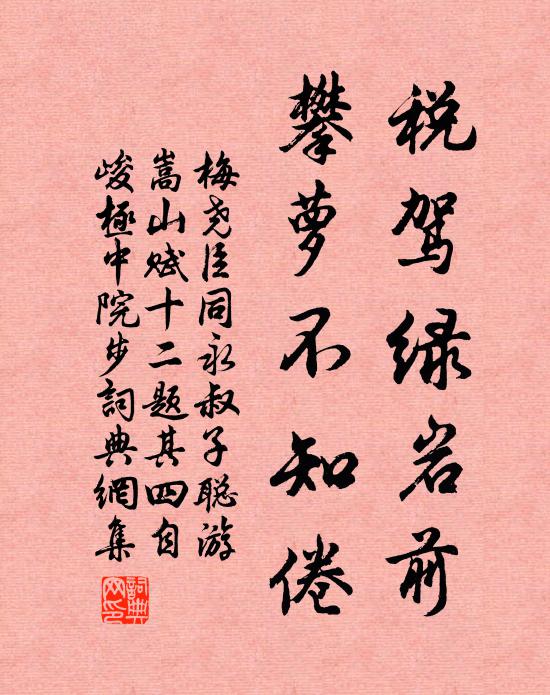 税驾绿岩前
攀萝不知倦
梅尧臣同永叔子聪游
嵩山赋十二题其四自
峻极中院步詞典網集
詞典
网印